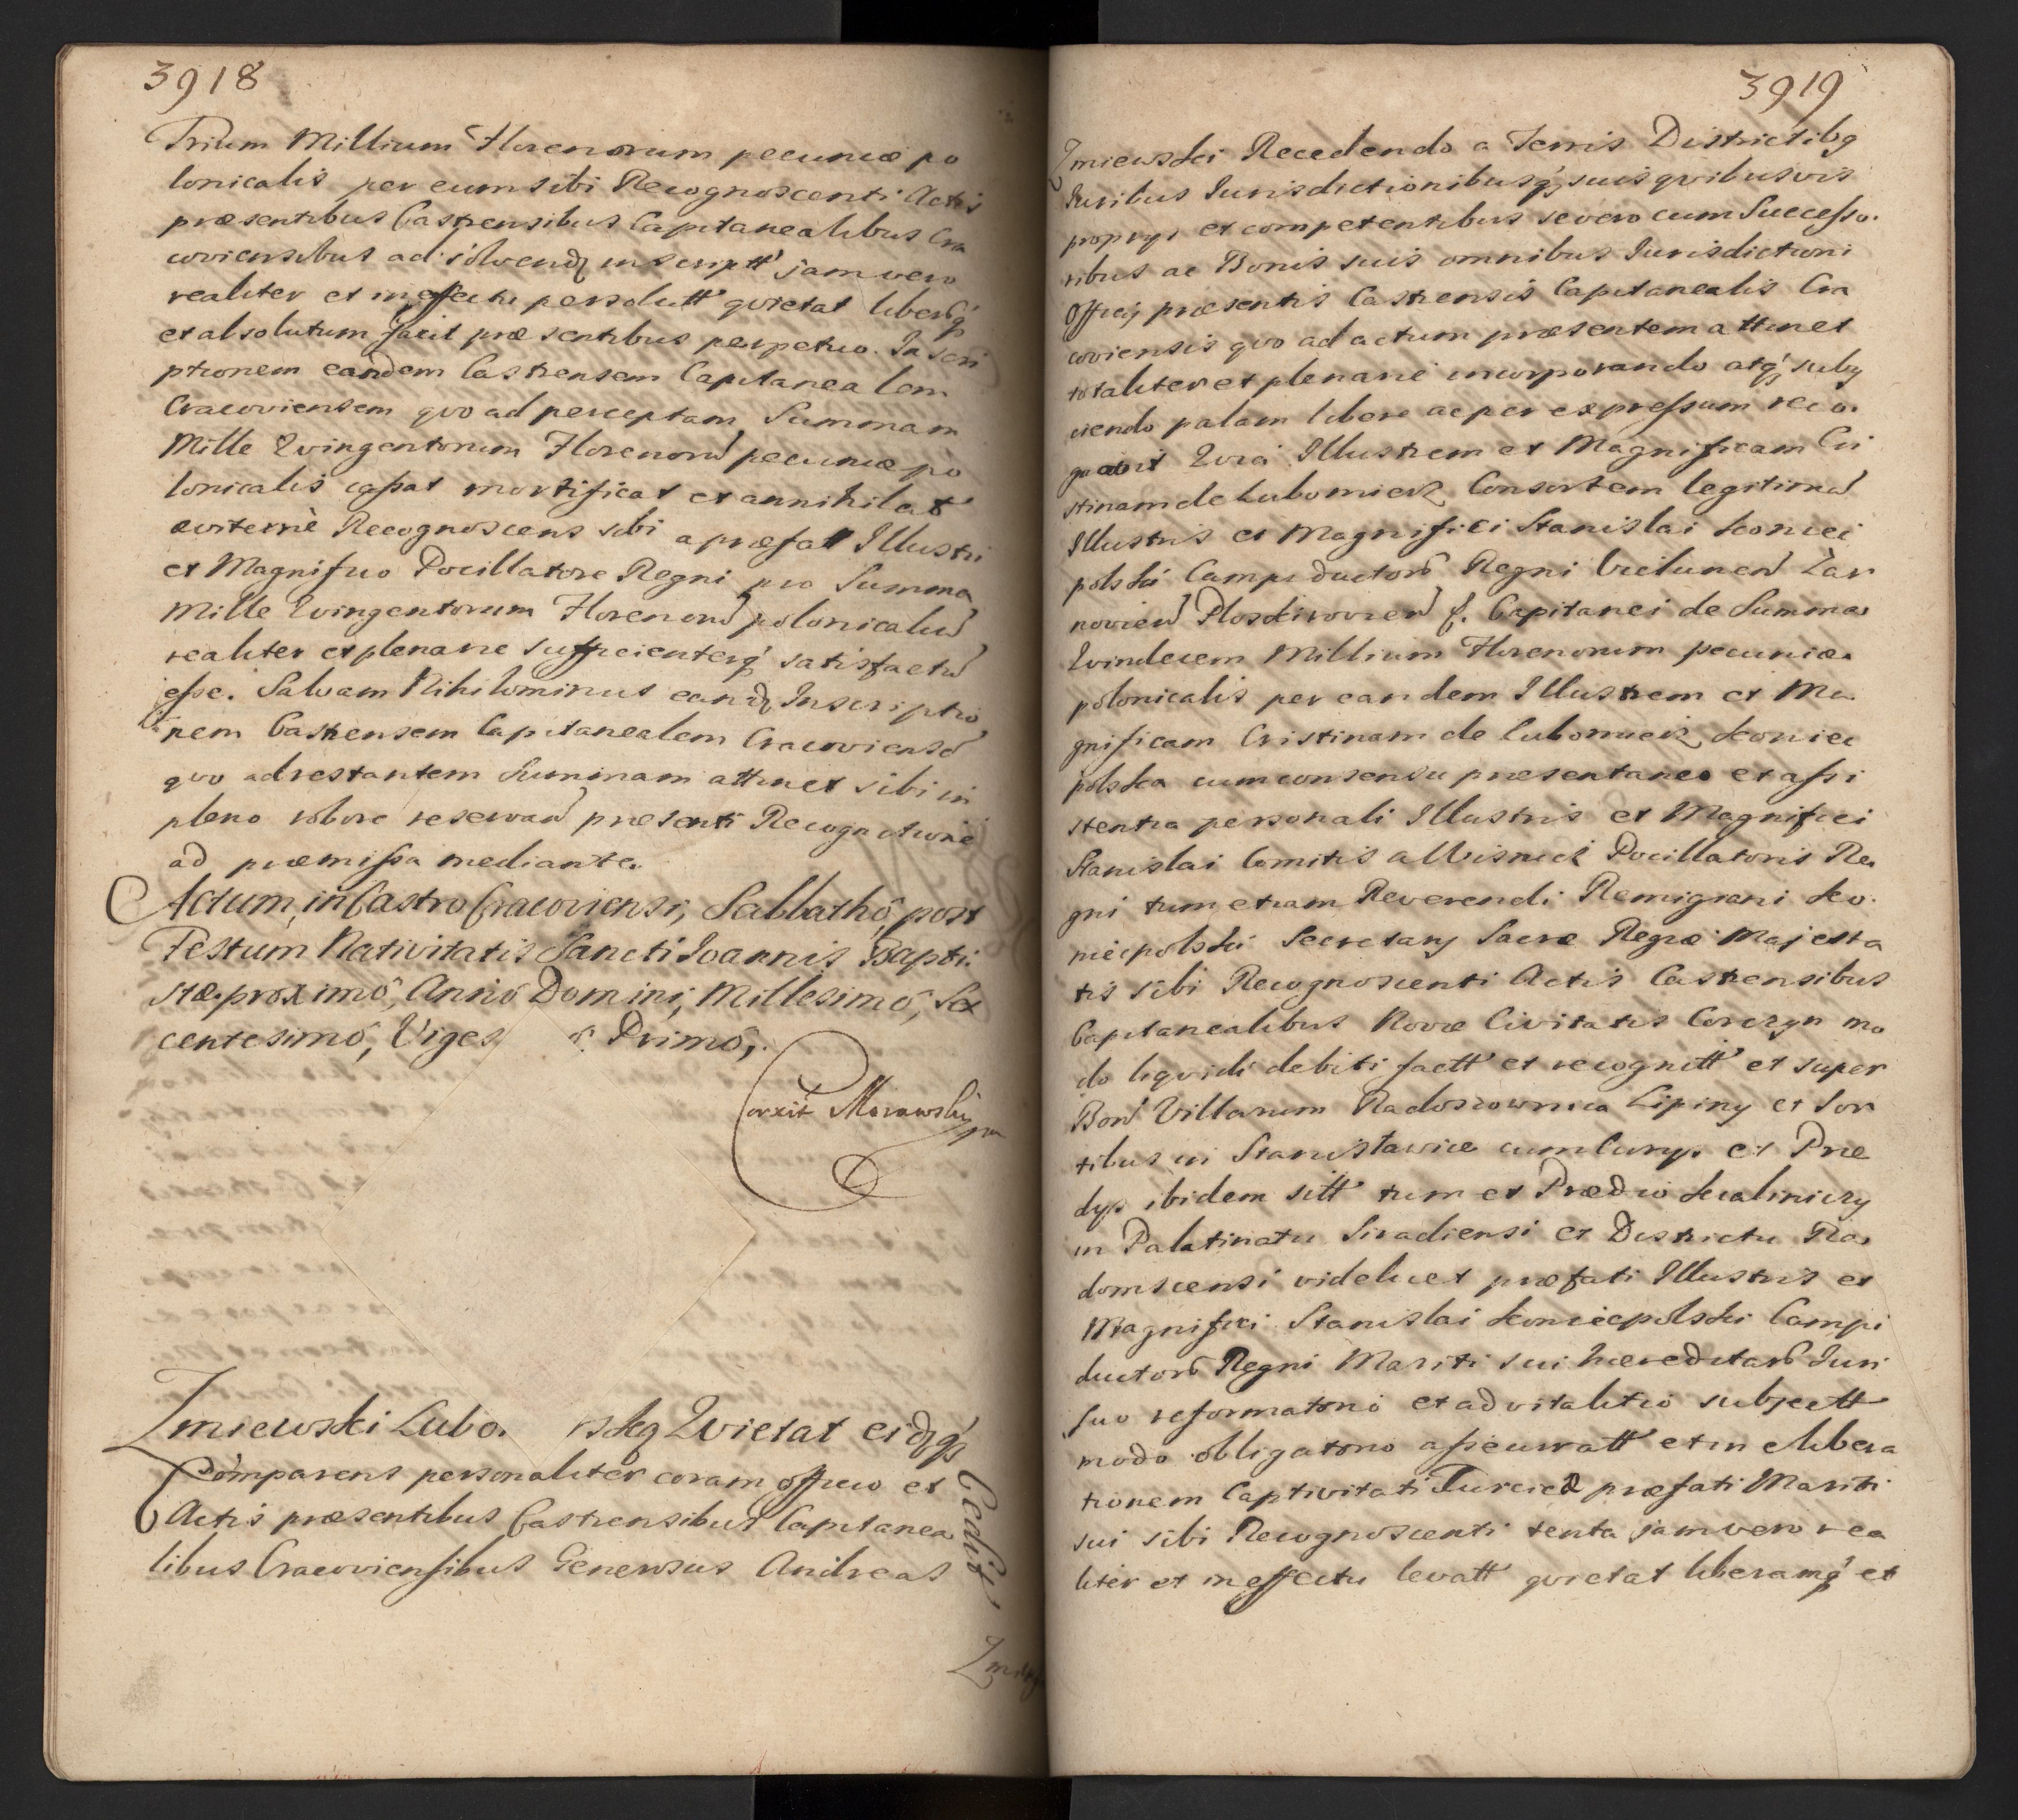 3918
Trium Millium Florenorum pecuniæ po
lonicalis per eum sibi Recognoscenti Actis
præsentibus Castrensibus Capitanealibus Cra
coviensibus ad solvend inscriptt jam vero
realiter et in effectu persolutt quietat liberq
et absolutum facit præsentibus perpetuo. Inscri
ptionem eandem Castrensem Capitanealem
Cracoviensem quo ad perceptam Summam
Mille Quingentorum Florenor pecuniæ po
lonicalis cassat mortificat et annihilat
æviternè Recognoscens sibi a præfat Illustri
et Magnifico Pocillatore Regni pro Summa
Mille Quingentorum Florenor polonicaliu
realiter et plenarie sufficienterq satisfactu
esse. Salvam Nihilominus eand Inscriptio
nem Castrensem Capitanealem Cracoviens
quo ad restantem Summam attinet sibi in
pleno robore reservan præsenti Recognitione
ad præmissa mediante.
Actum in Castro Cracoviensi, Sabbathô, post
Festum Nativitatis Sancti Ioannis Bapti
stæ proximô, Annô Domini, Millesimô, Sex
centesimô, Viges ô Primô,
Corxit Morawsky mp
Zmiewski Lubo. skq Quietat eidq
Cedit,
Comparens personaliter coram officio et
Actis præsentibus Castrensibus Capitanea
libus Cracoviensibus Generosus Andreas
3919
Zmiewski Recedendo a Terris Districtibq
Iuribus Iurisdictionibusq suis quibusvis
proprys et competentibus se vero cum Successo.
ribus ac Bonis suis omnibus Iurisdictioni
Officy præsentis Castrensis Capitanealis Cra
coviensis quo ad actum præsentem attinet
totaliter et plenariè incorporando atq suby
ciendo palam libere ac per expressum reco.
gnovit Quia Illustrem et Magnificam Cri
stinam de Lubomierz Consortem legitima
Illustris et Magnifici Stanislai Koniec
polski Campiductor Regni Vielunen Zar
novien Ploskirovien &. Capitanei de Summa
Quindecem Millium Florenorum pecuniæ
polonicalis per eandem Illustrem et Ma
gnificam Cristinam de Lubomierz Koniec
polska cum consensu præsentaneo et assi
stentia personali Illustris et Magnifici
Stanislai Comitis a Wisnicz Pocillatoris Re
gni tum etiam Reverendi Remigiani Ko.
niecpolski Secretary Sacræ Regiæ Majesta
tis sibi Recognoscenti Actis Castrensibus
Capitanealibus Novæ Civitatis Corczyn mo
do liquidi debiti factt et recognitt et super
Bon Villarum Radoszownica Lipiny et Sor
tibus in Stanisławice cum Curys et Præ
dys ibidem sitt tum et Prædio Kcaliniczy
in Palatinatu Siradiensi et Districtu Ra
domscensi videlicet præfati Illustris et
Magnifici Stanislai Koniecpolski Campi
ductor Regni Mariti sui hæreditar Iuri
suo reformatorio et advitalitio subjectt
modo obligatorio assecuratt et in elibera
tionem Captivitati Turcicæ præfati Mariti
sui sibi Recognoscenti tenta jam vero rea
liter et in effectu levatt quietat liberamq et